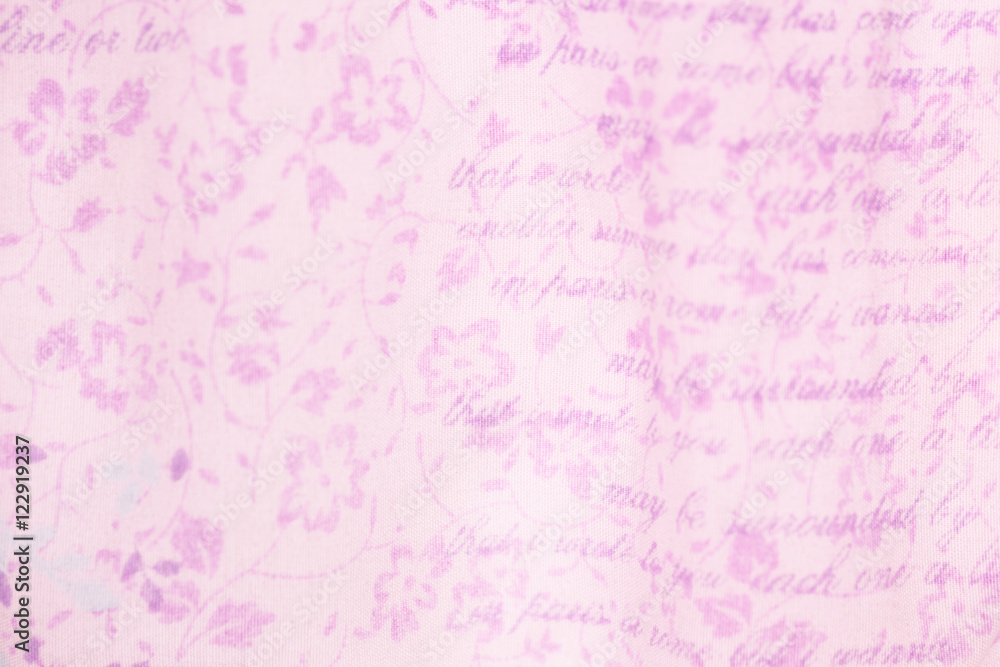 summer day has come
line or two
in paris or rome but i wanna
may surrounded by
that i wrote to you each one a
another summer day has come and
in paris or rome but i wanna
may be surrounded by
that i wrote to you each one a
may be surrounded by
that i wrote to you each one a
paris or rome but i wanna
Adobe Stock | #122919237